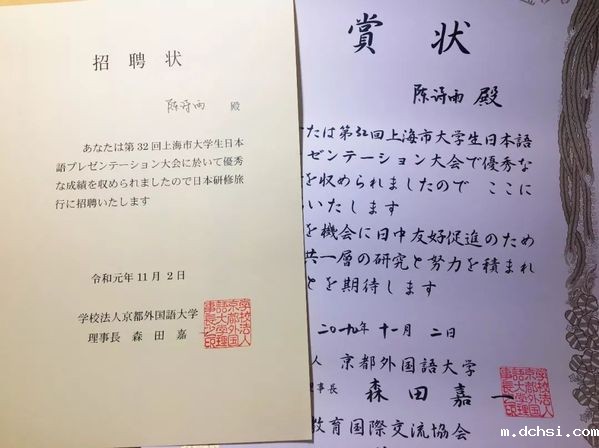 招聘状
陈诗雨 殿
あなたは第32回上海市大学生日本
語プレゼンテーション大会に於いて優秀
な成績を収められましたので日本研修旅
行に招聘いたします
令和元年11月2日
学校法人京都外国語大学
理事長 森田嘉一
学校法人
京都外国
語大学理
事長之印
賞状
陈诗雨 殿
たは第32回上海市大学生日本語
ゼンテーション大会で優秀な
を収められましたので ここに
いたします
を機会に日中友好促進のため
共一層の研究と努力を積まれ
とを期待します
二〇一九年十一月二日
人 京都外国語大学
事長 森田嘉一
学校法人
京都外国
語大学理
事長之印
教育国際交流協会
m.dchsi.com